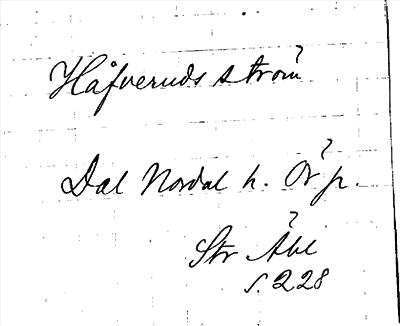 Håfveruds ström ?
Dal Nordal h. Ör ? p.
Str Åbl ?
s. 228